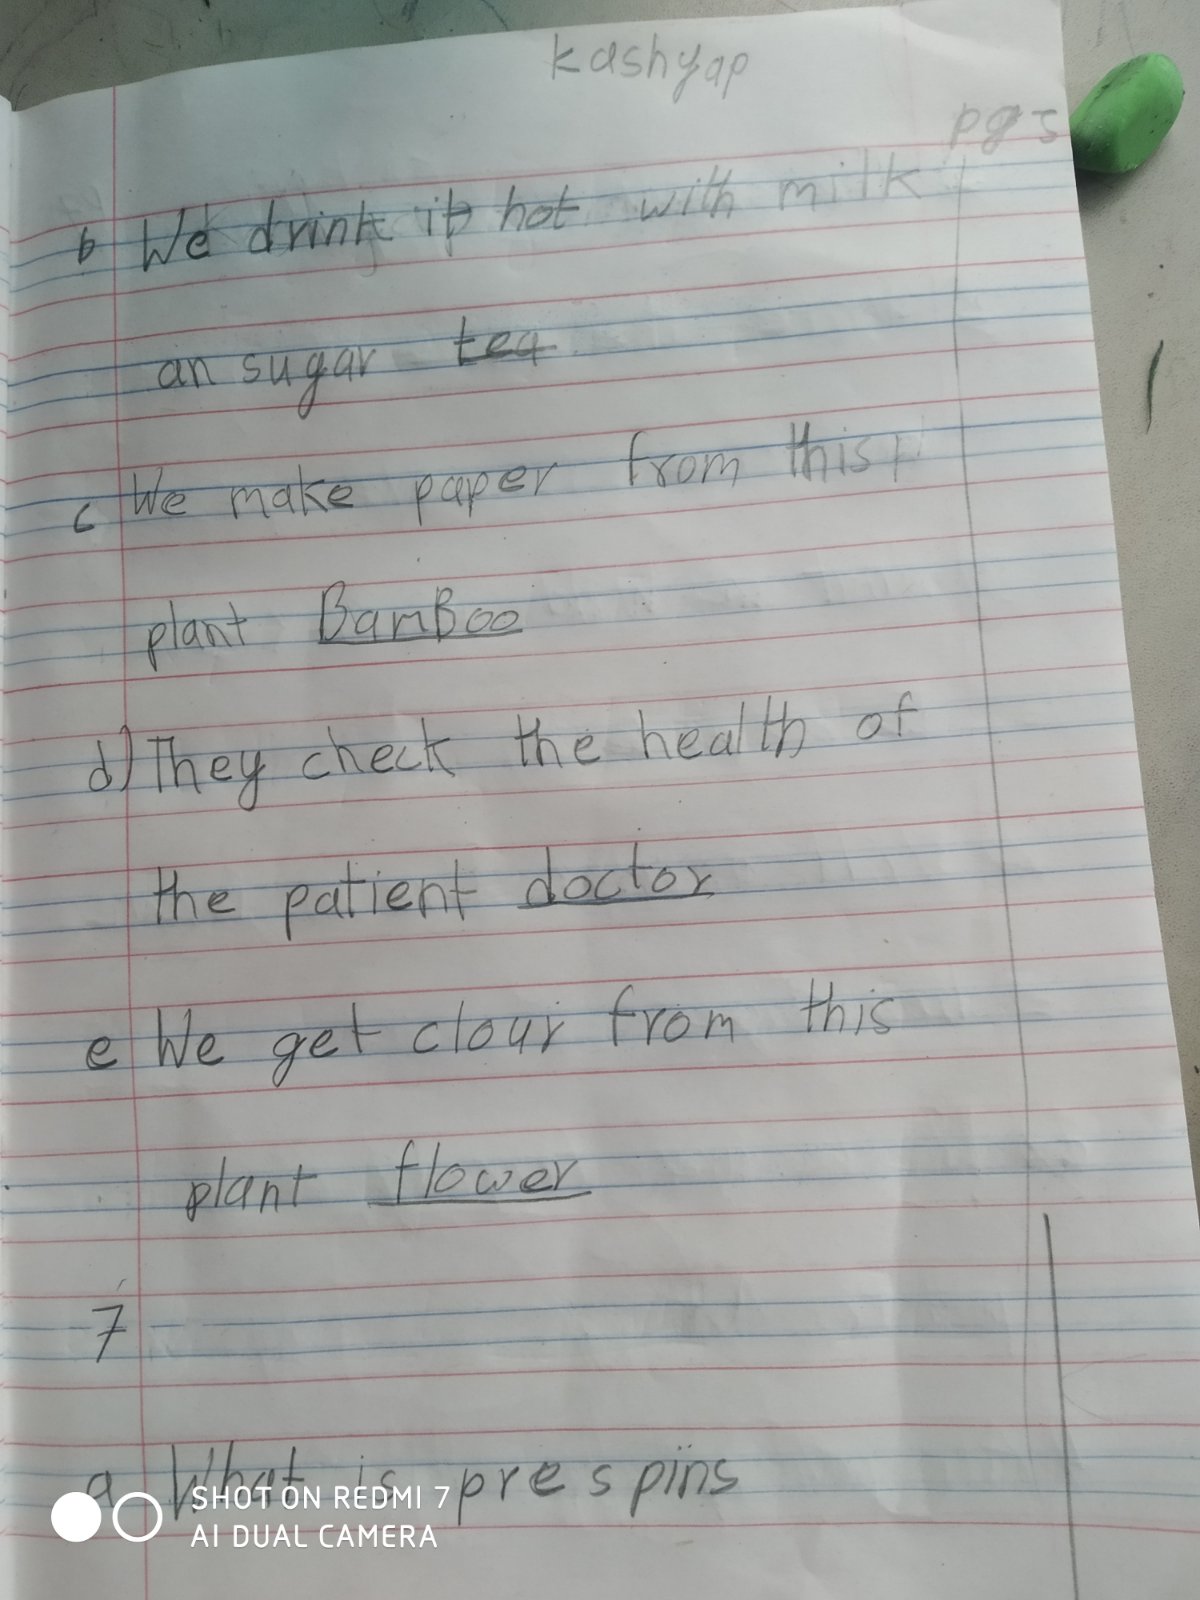 kashyap
pg 5
b We drink it hot with milk
an sugar tea
c We make paper from this
plant BamBoo
d) They check the health of
the patient doctor
e We get clour from this
plant flower
7
a What is prespins
SHOT ON REDMI 7
AI DUAL CAMERA